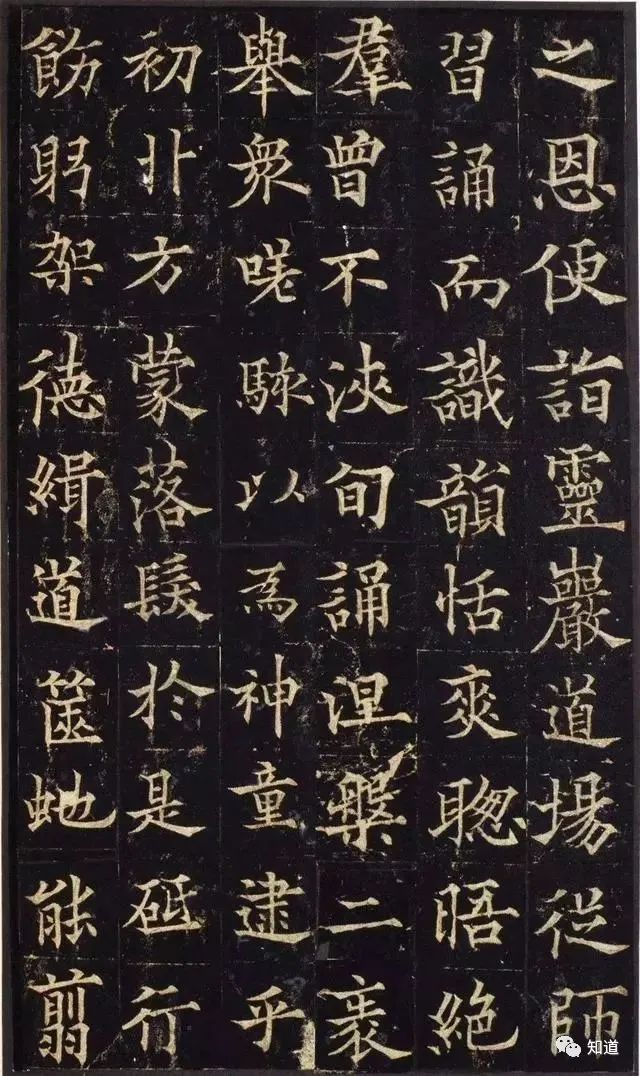 之恩便詣靈巖道場從師
習誦而識韻恬爽聦晤絕
羣曾不浹旬誦涅槃二袠
舉衆嗟駭以為神童逮乎
初北方蒙落髮於是砥行
飭躬架德緝道篋虵能翦
知道